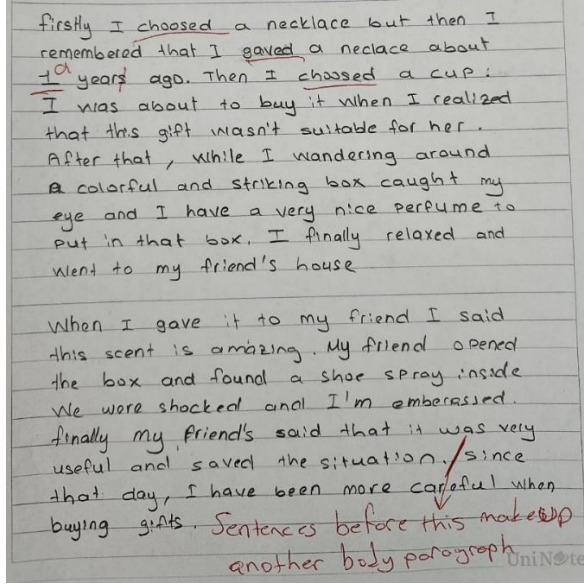 firstly I choosed a necklace but then I
remembered that I gaved a neclace about
a years ago. Then I choosed a cup.
I was about to buy it when I realized
that this gift wasn't suitable for her.
After that, while I wandering around
a colorful and striking box caught my
eye and I have a very nice perfume to
put in that box. I finally relaxed and
went to my friend's house
When I gave it to my friend I said
this scent is amazing. My friend opened
the box and found a shoe spray inside
We were shocked and I'm emberassed.
finally my friend's said that it was very
useful and saved the situation. / since
that day, I have been more careful when
buying gifts. Sentences before this makes up
another body paragraph
UniNote